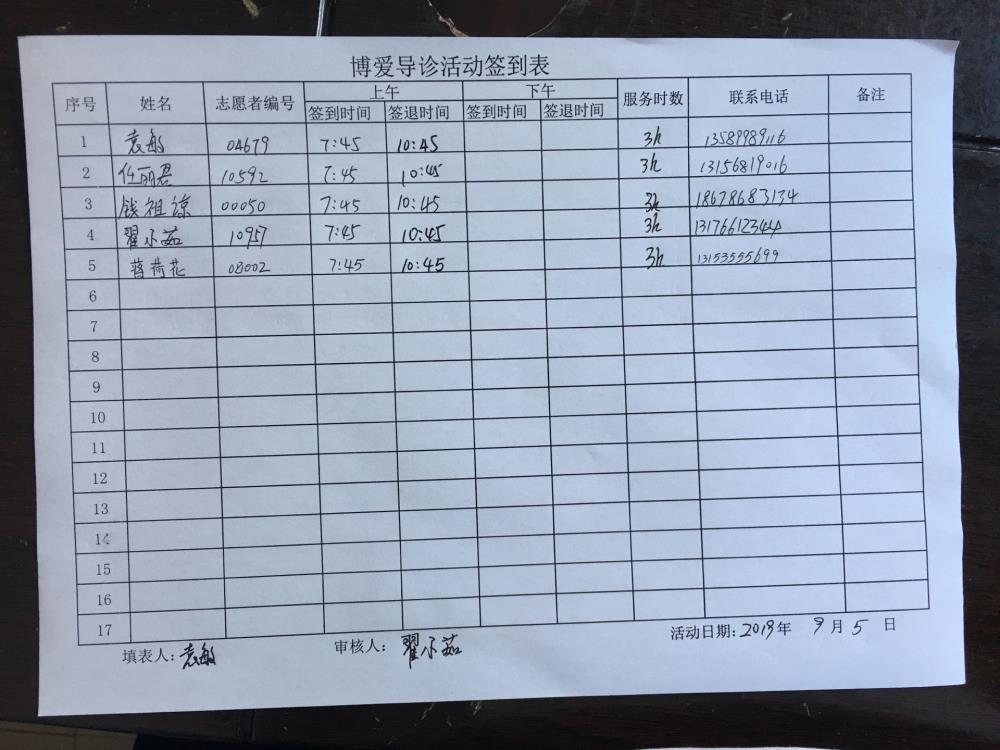 博爱导诊活动签到表
序号 姓名 志愿者编号 上午 下午 服务时数 联系电话 备注
签到时间 签退时间 签到时间 签退时间
1 袁敏 04679 7:45 10:45 3h 13589989116
2 任丽君 10592 7:45 10:45 3h 13156819016
3 钱祖谅 00050 7:45 10:45 3h 18678683134
4 翟小茹 10957 7:45 10:45 3h 13176612344
5 蒋荷花 08002 7:45 10:45 3h 13153555699
6
7
8
9
10
11
12
13
14
15
16
17
填表人:袁敏 审核人:翟小茹 活动日期:2019年 9月 5 日